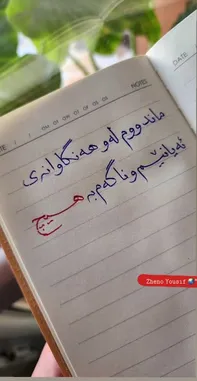 NOTE:
DATE:
DATE: / /
ماندووم لەو هەنگاوانەی
ئەیانێم و ناگەم بە هیچ
Zheno Yousif